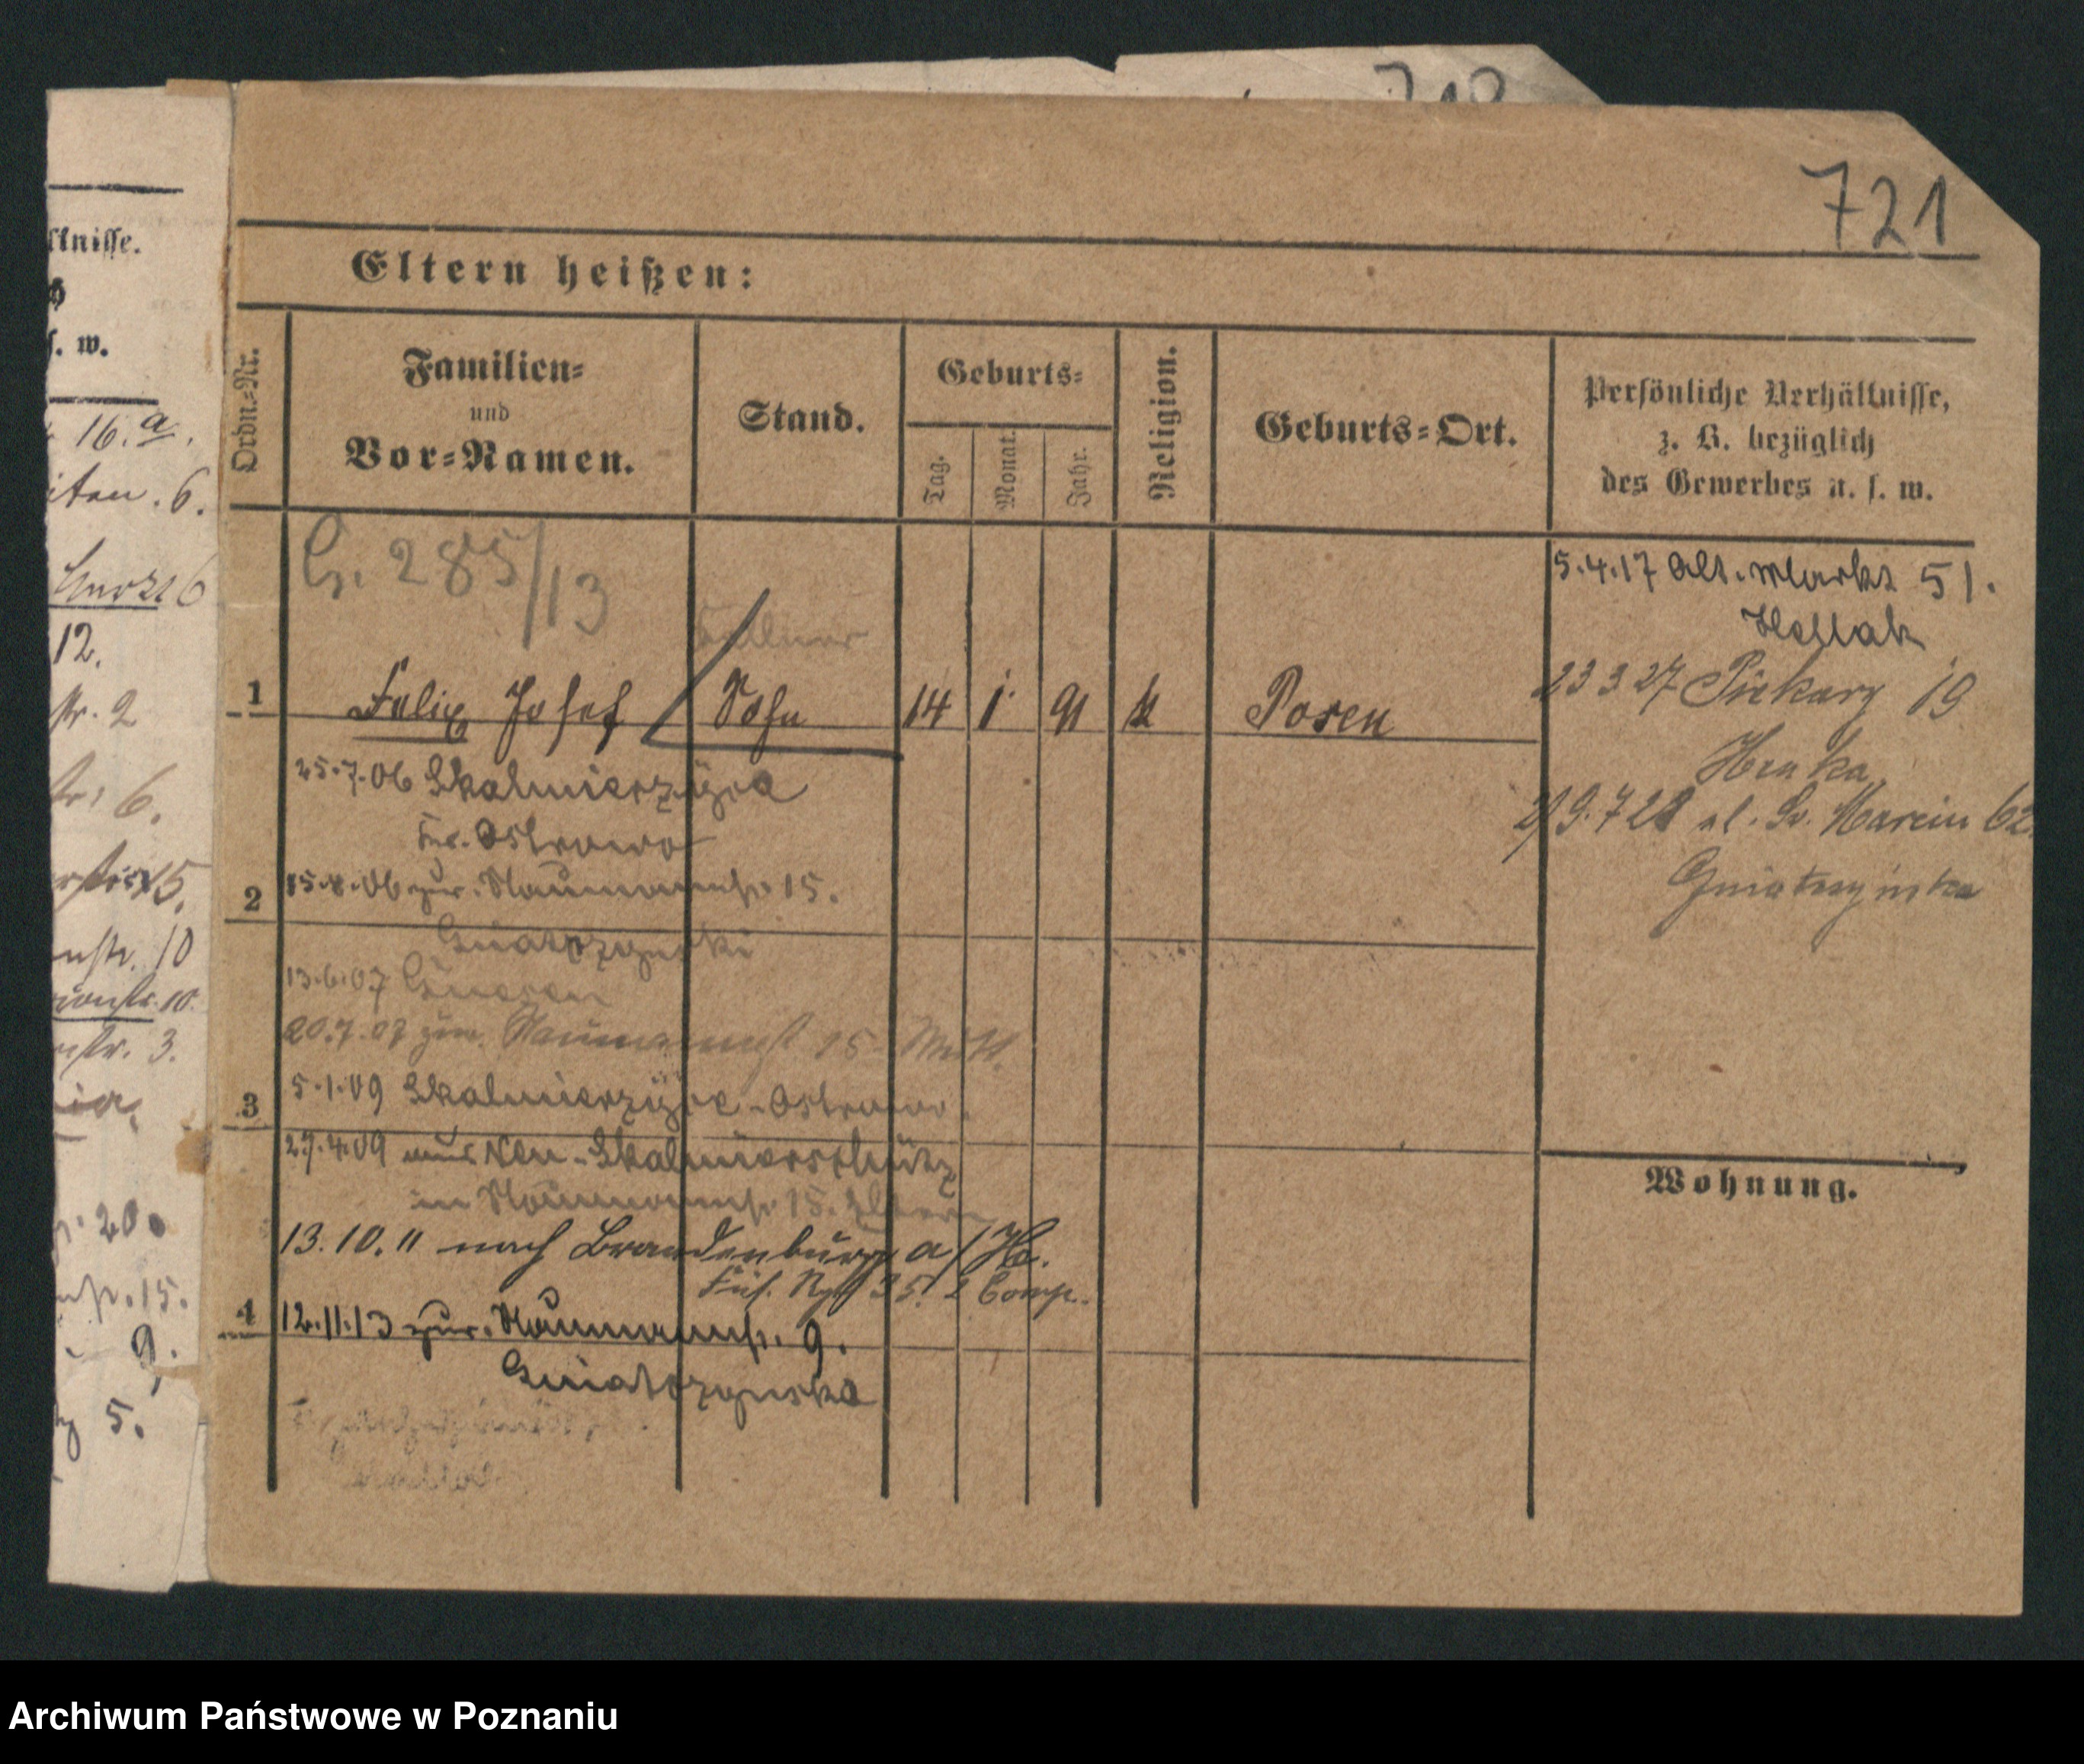 718
721
Eltern heißen:
Ordn.-Nr.
Familien-
und
Vor-Namen.
Stand.
Geburts-
Tag.
Monat.
Jahr.
Religion.
Geburts-Ort.
Persönliche Verhältnisse,
z. B. bezüglich
des Gewerbes u. s. w.
G. 285/13
1 Felix Josef Sohn 14 1. 91 k Posen
25.7.06 Skalmierzyce
Kr. Ostrowo
2 15.8.06 zur. Naumannstr. 15.
Gniatczynski
13.6.07 Gnesen
20.7.07 zur. Naumannst 15
3 5.1.09 Skalmierzyce - Ostrowo.
27.4.09 aus Neu-Skalmierschütz
in Naumannstr. 15. Eltern
13.10.11 nach Brandenburg a/H.
Füs. Rgt 35. 2 Comp.
4 12.11.13 zur. Naumannstr. 9.
Gniatczynska
5.4.17 Alt. Markt 51.
23 3 27 Piekary 19
Hruka
9.7 28 ul. Św. Marcin 62
Gniatczyńska
Wohnung.
ltnisse.
s. w.
16.a.
6.
12.
str. 2
6.
15.
nstr. 10
10.
str. 3.
20.
15.
9.
5.
Archiwum Państwowe w Poznaniu